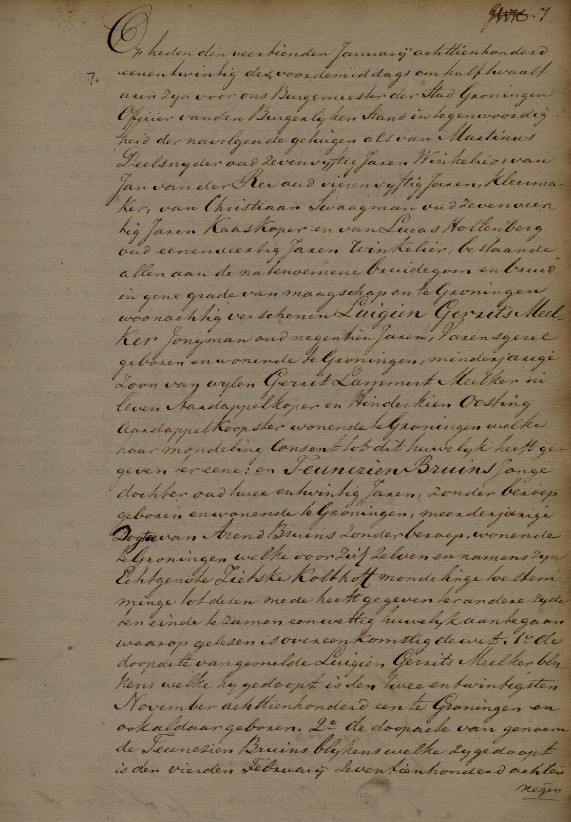 7
Op heden den veertienden January achttienhonderd
7. eenentwintig des voordemiddags om half twaalf
uren zyn voor ons Burgemeester der Stad Groningen
Officier vanden Burgerlyken Stand in tegenwoordig
heid der navolgende getuigen als van Martinus
Deelsnyder oud zevenvyftig Jaren Winkelier, van
Jan van der Rex oud vierenvyftig Jaren, Kleerma
ker, van Christiaan Swaagman oud zevenveer
tig Jaren Kaaskoper en van Lucas Hollenberg
oud eenenveertig Jaren Winkelier, bestaande
allen aan de natenoemene bruidegom en bruid
in gene grade van maagschap en te Groningen
woonachtig verschenen Luigien Gerrits Meel-
ker Jongman oud negentien Jaren, Varensgezel
geboren en wonende te Groningen, minderjarige
Zoon van wylen Gerrit Lammert Meelker in
leven Aardappelkoper en Hinderkien Oosting
Aardappelkoopster wonende te Groningen welke
naar mondeling Consent tot dit huwelyk heeft ge-
geven ter eene: en Teunizien Bruins Jonge
dochter oud twee entwintig Jaren, zonder beroep
geboren en wonende te Groningen, meerderjarige
Dogter van Arend Bruins zonder beroep, wonende
te Groningen welke voor zich zelven en namens zyn
Echtgenote Zietske Kolthoff mondelinge toestem
minge tot dezen mede heeft gegeven ter andere zyde
ten einde te zamen een wettig huwelyk aantegaan
waarop gelezen is overeenkomstig de wet. 1o de
doopacte van gemelde Luigien Gerrits Meelker bly
kens welke hy gedoopt is den twee entwintigsten
November achttienhonderd een te Groningen en
ook aldaar geboren. 2o de doopacte van genoem
de Teunezien Bruins blykens welke zy gedoopt
is den vierden February zeventienhonderd achten
negen